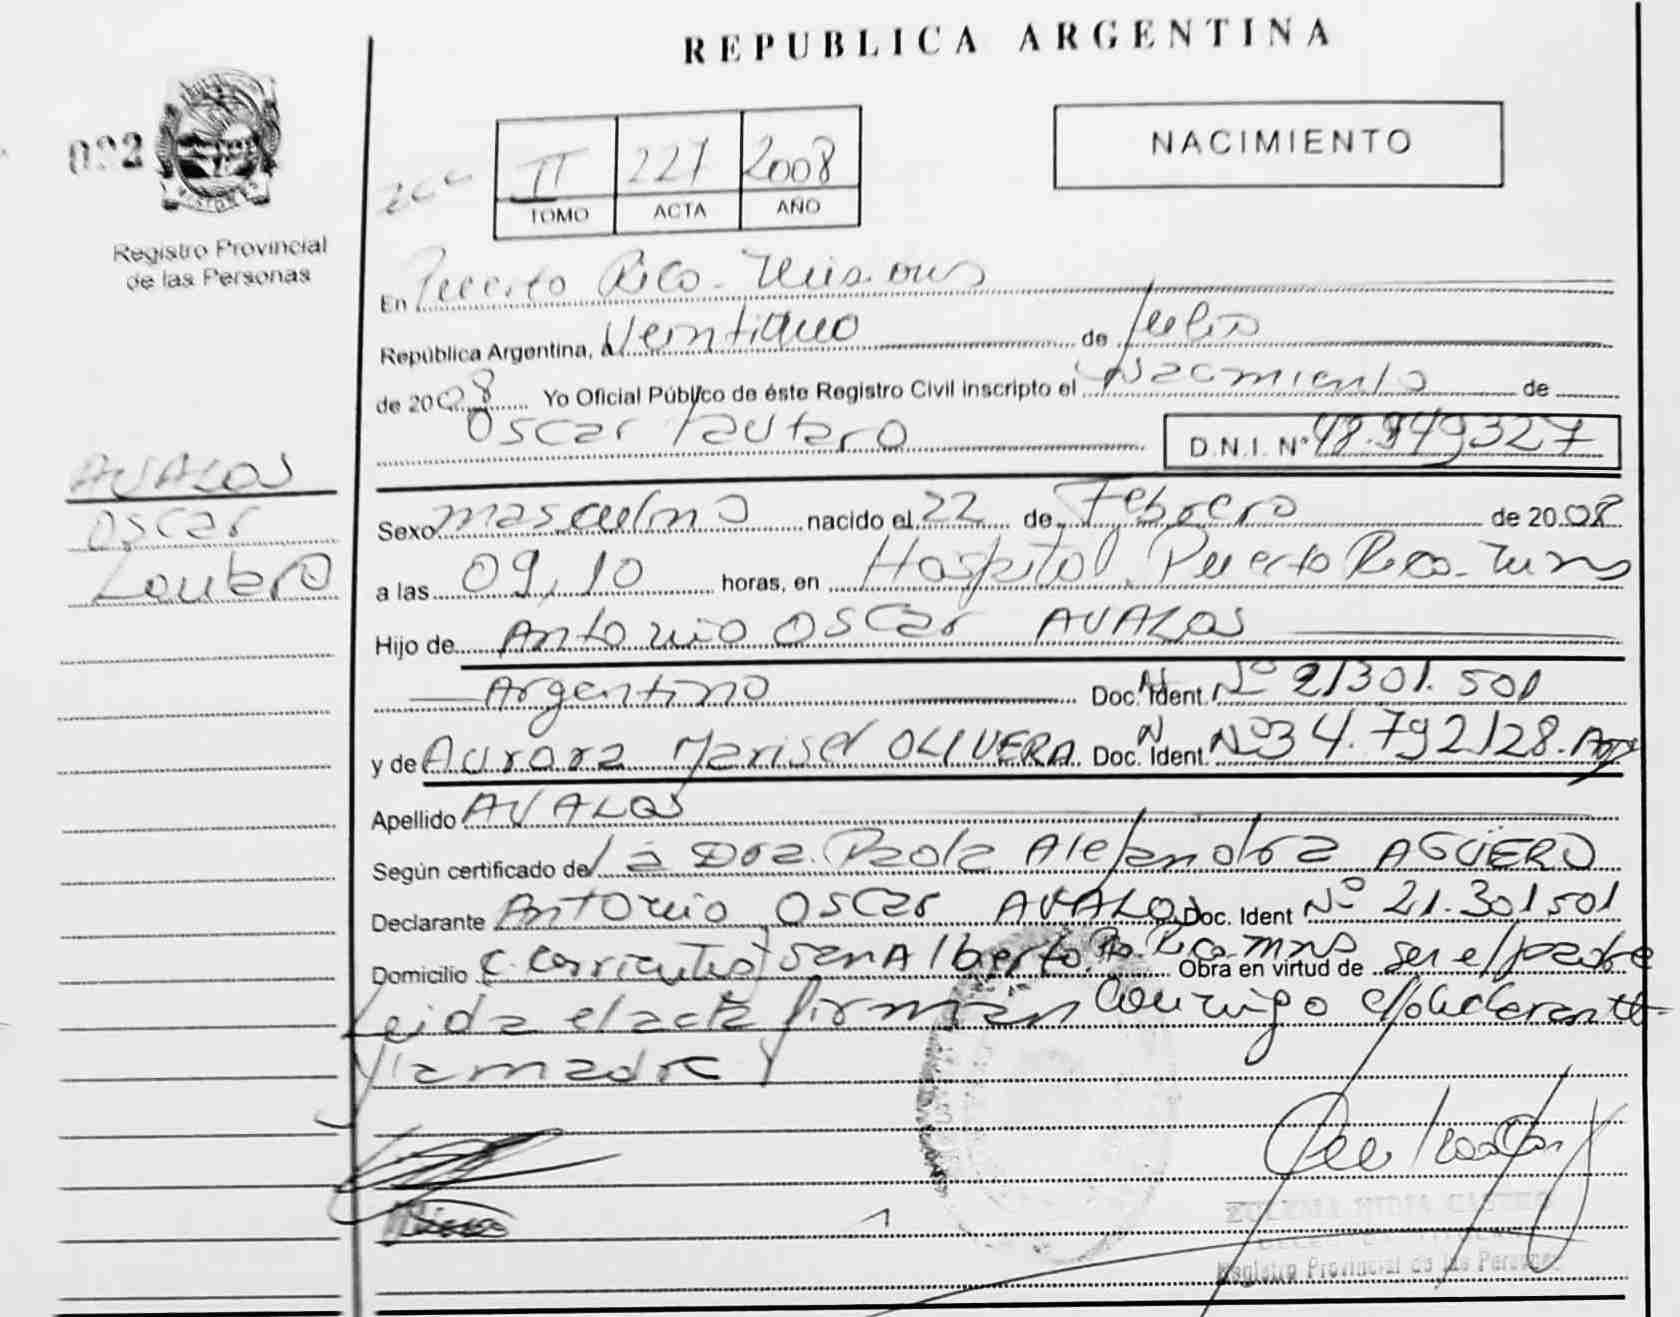 REPUBLICA ARGENTINA
NACIMIENTO
II 227 2008
TOMO ACTA AÑO
Registro Provincial
de las Personas
En Puerto Rico - Misiones
República Argentina, a Veintiuno de Julio
de 2008 Yo Oficial Público de éste Registro Civil inscripto el Nacimiento de
Oscar Lautaro D.N.I. Nº 48.949327
AVALOS
Oscar
Lautaro
Sexo masculino nacido el 22 de Febrero de 2008
a las 09,10 horas, en Hospital Puerto Rico - Mns
Hijo de Antonio Oscar AVALOS
Argentino Doc. Ident. Nº 21301.501
y de Aurora Marisel OLIVERA Doc. Ident. Nº 34.792128. Arg
Apellido AVALOS
Según certificado de la Dra. Paola Alejandra AGÜERO
Declarante Antonio Oscar AVALOS Doc. Ident Nº 21.301501
Domicilio C. Corrientes San Alberto. Pto. Rico Mns Obra en virtud de ser el padre
Leida el acta firman conmigo el declarante
y la madre
Registro Provincial de las Personas